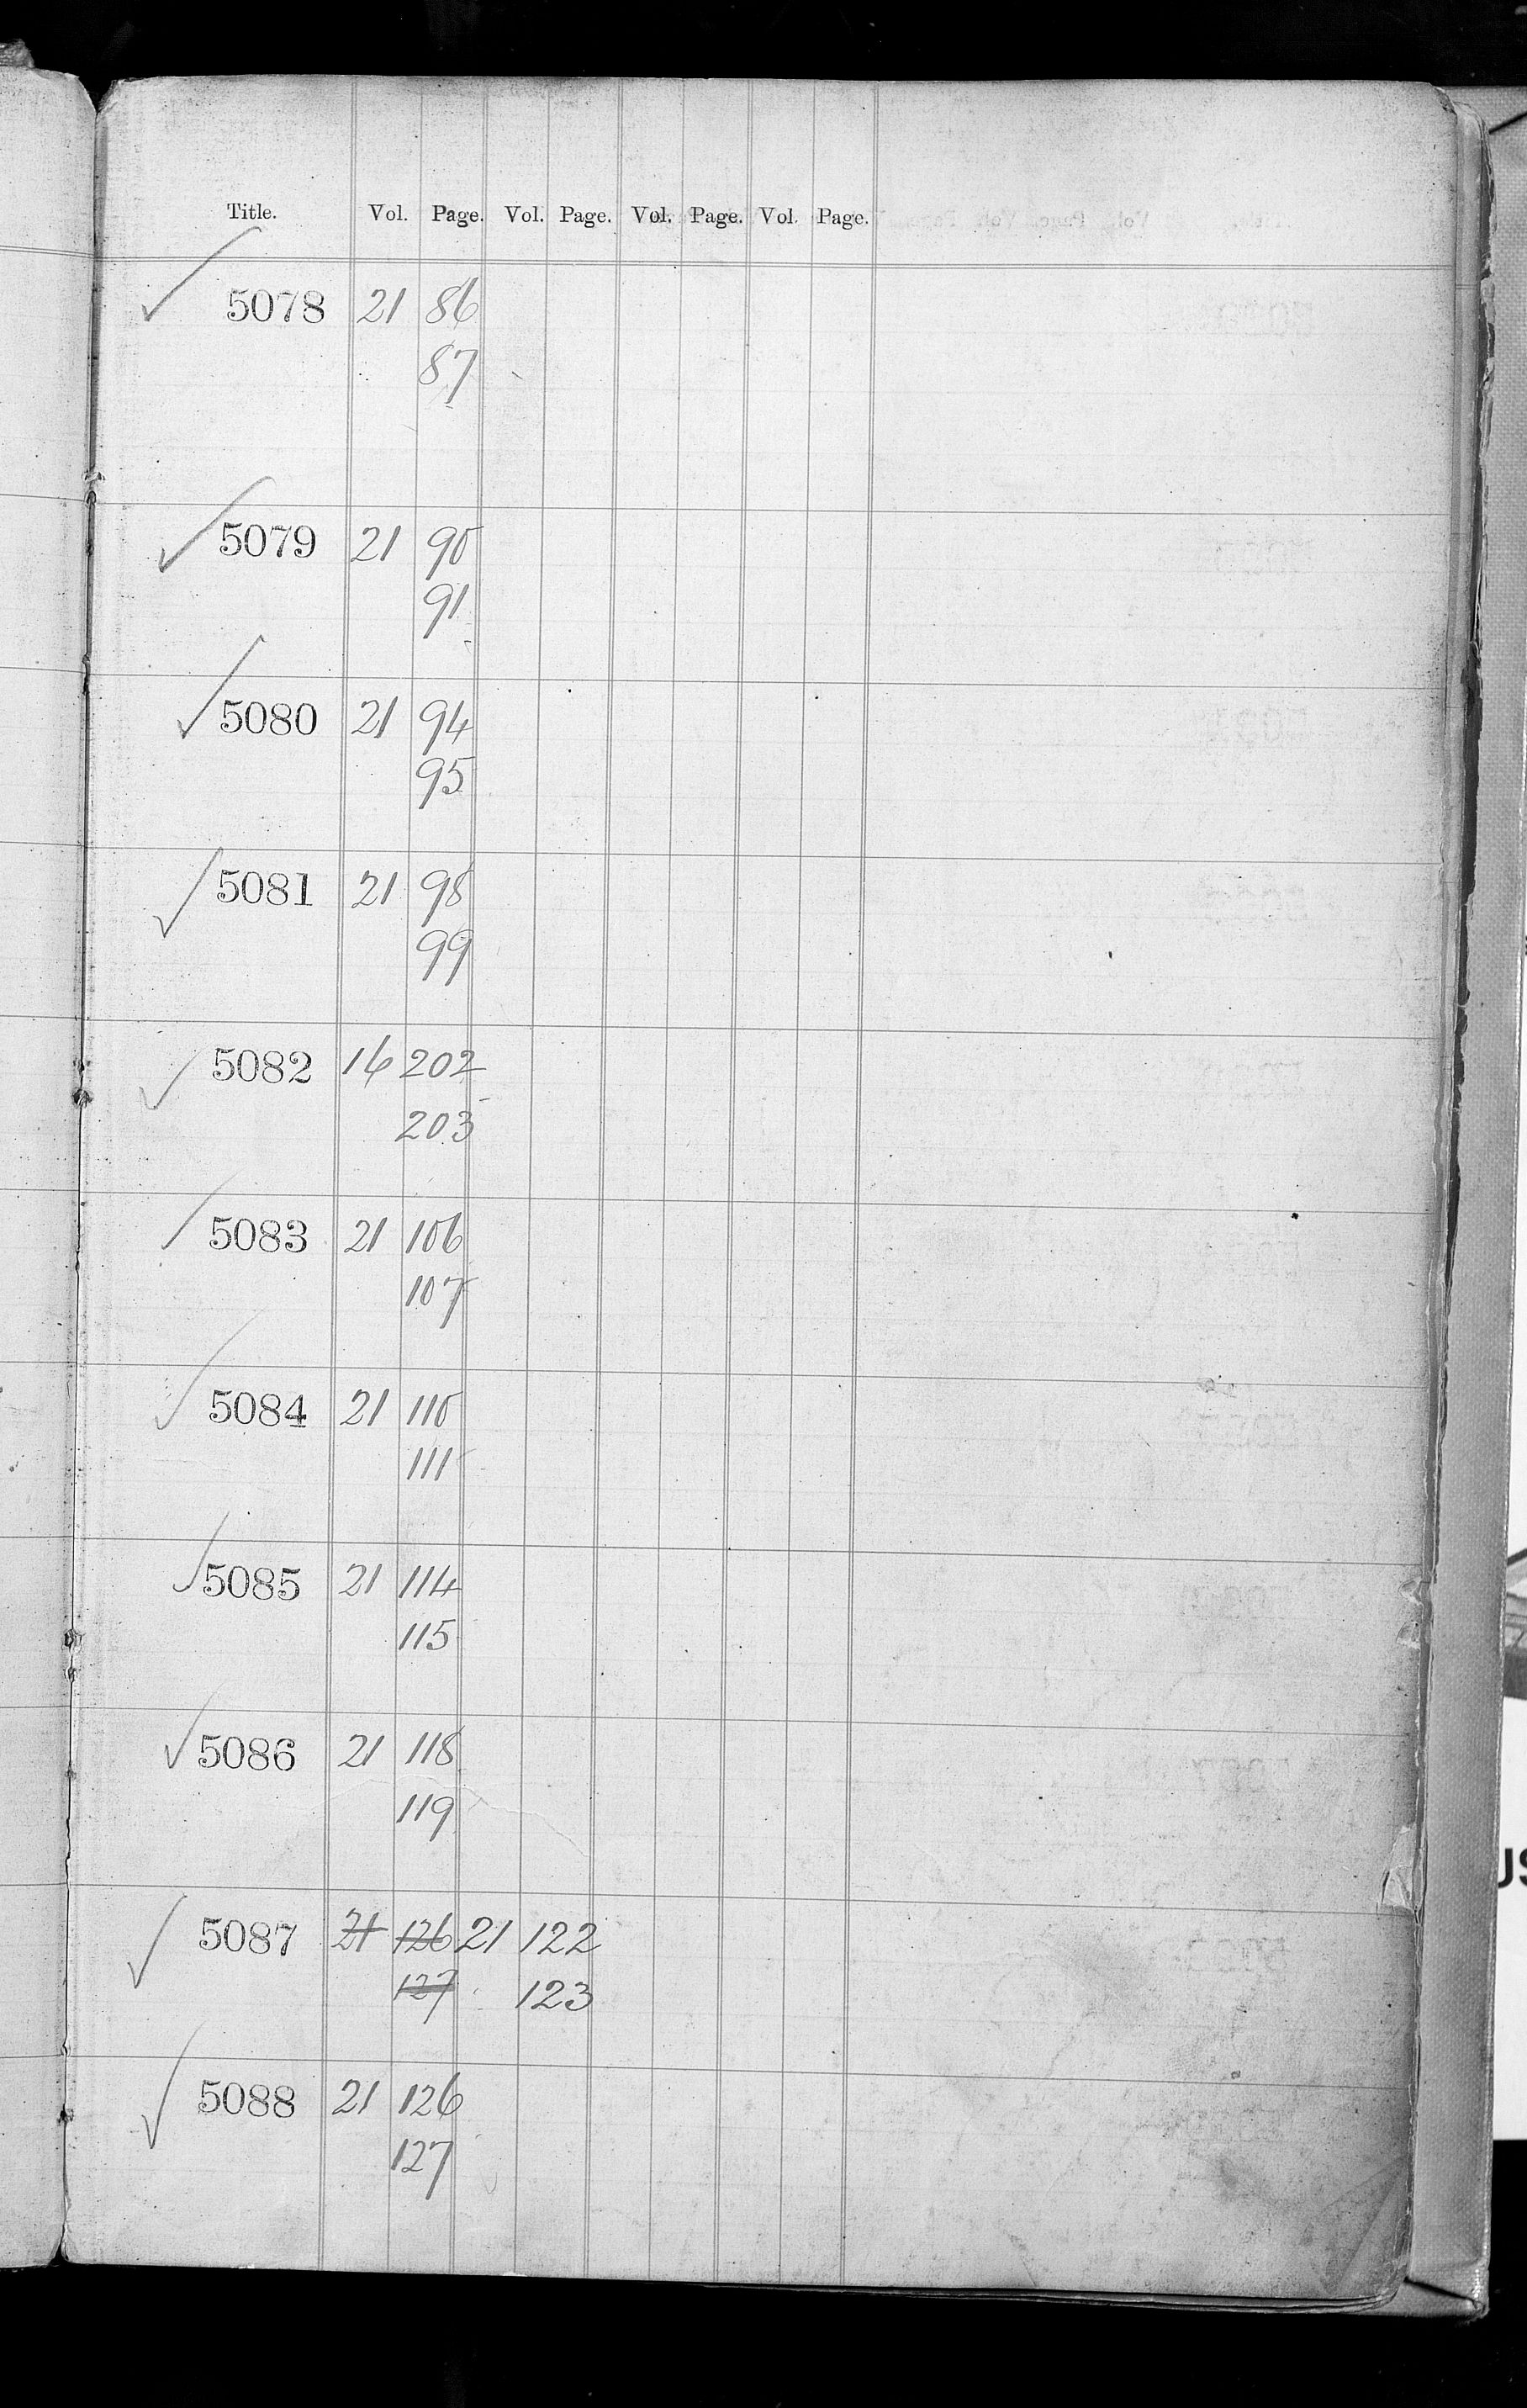 Title. Vol. Page. Vol. Page. Vol. Page. Vol. Page.
5078 21 86
87
5079 21 90
91
5080 21 94
95
5081 21 98
99
5082 16 202
203
5083 21 106
107
5084 21 110
111
5085 21 114
115
5086 21 118
119
5087 21 126 21 122
127 123
5088 21 126
127
US